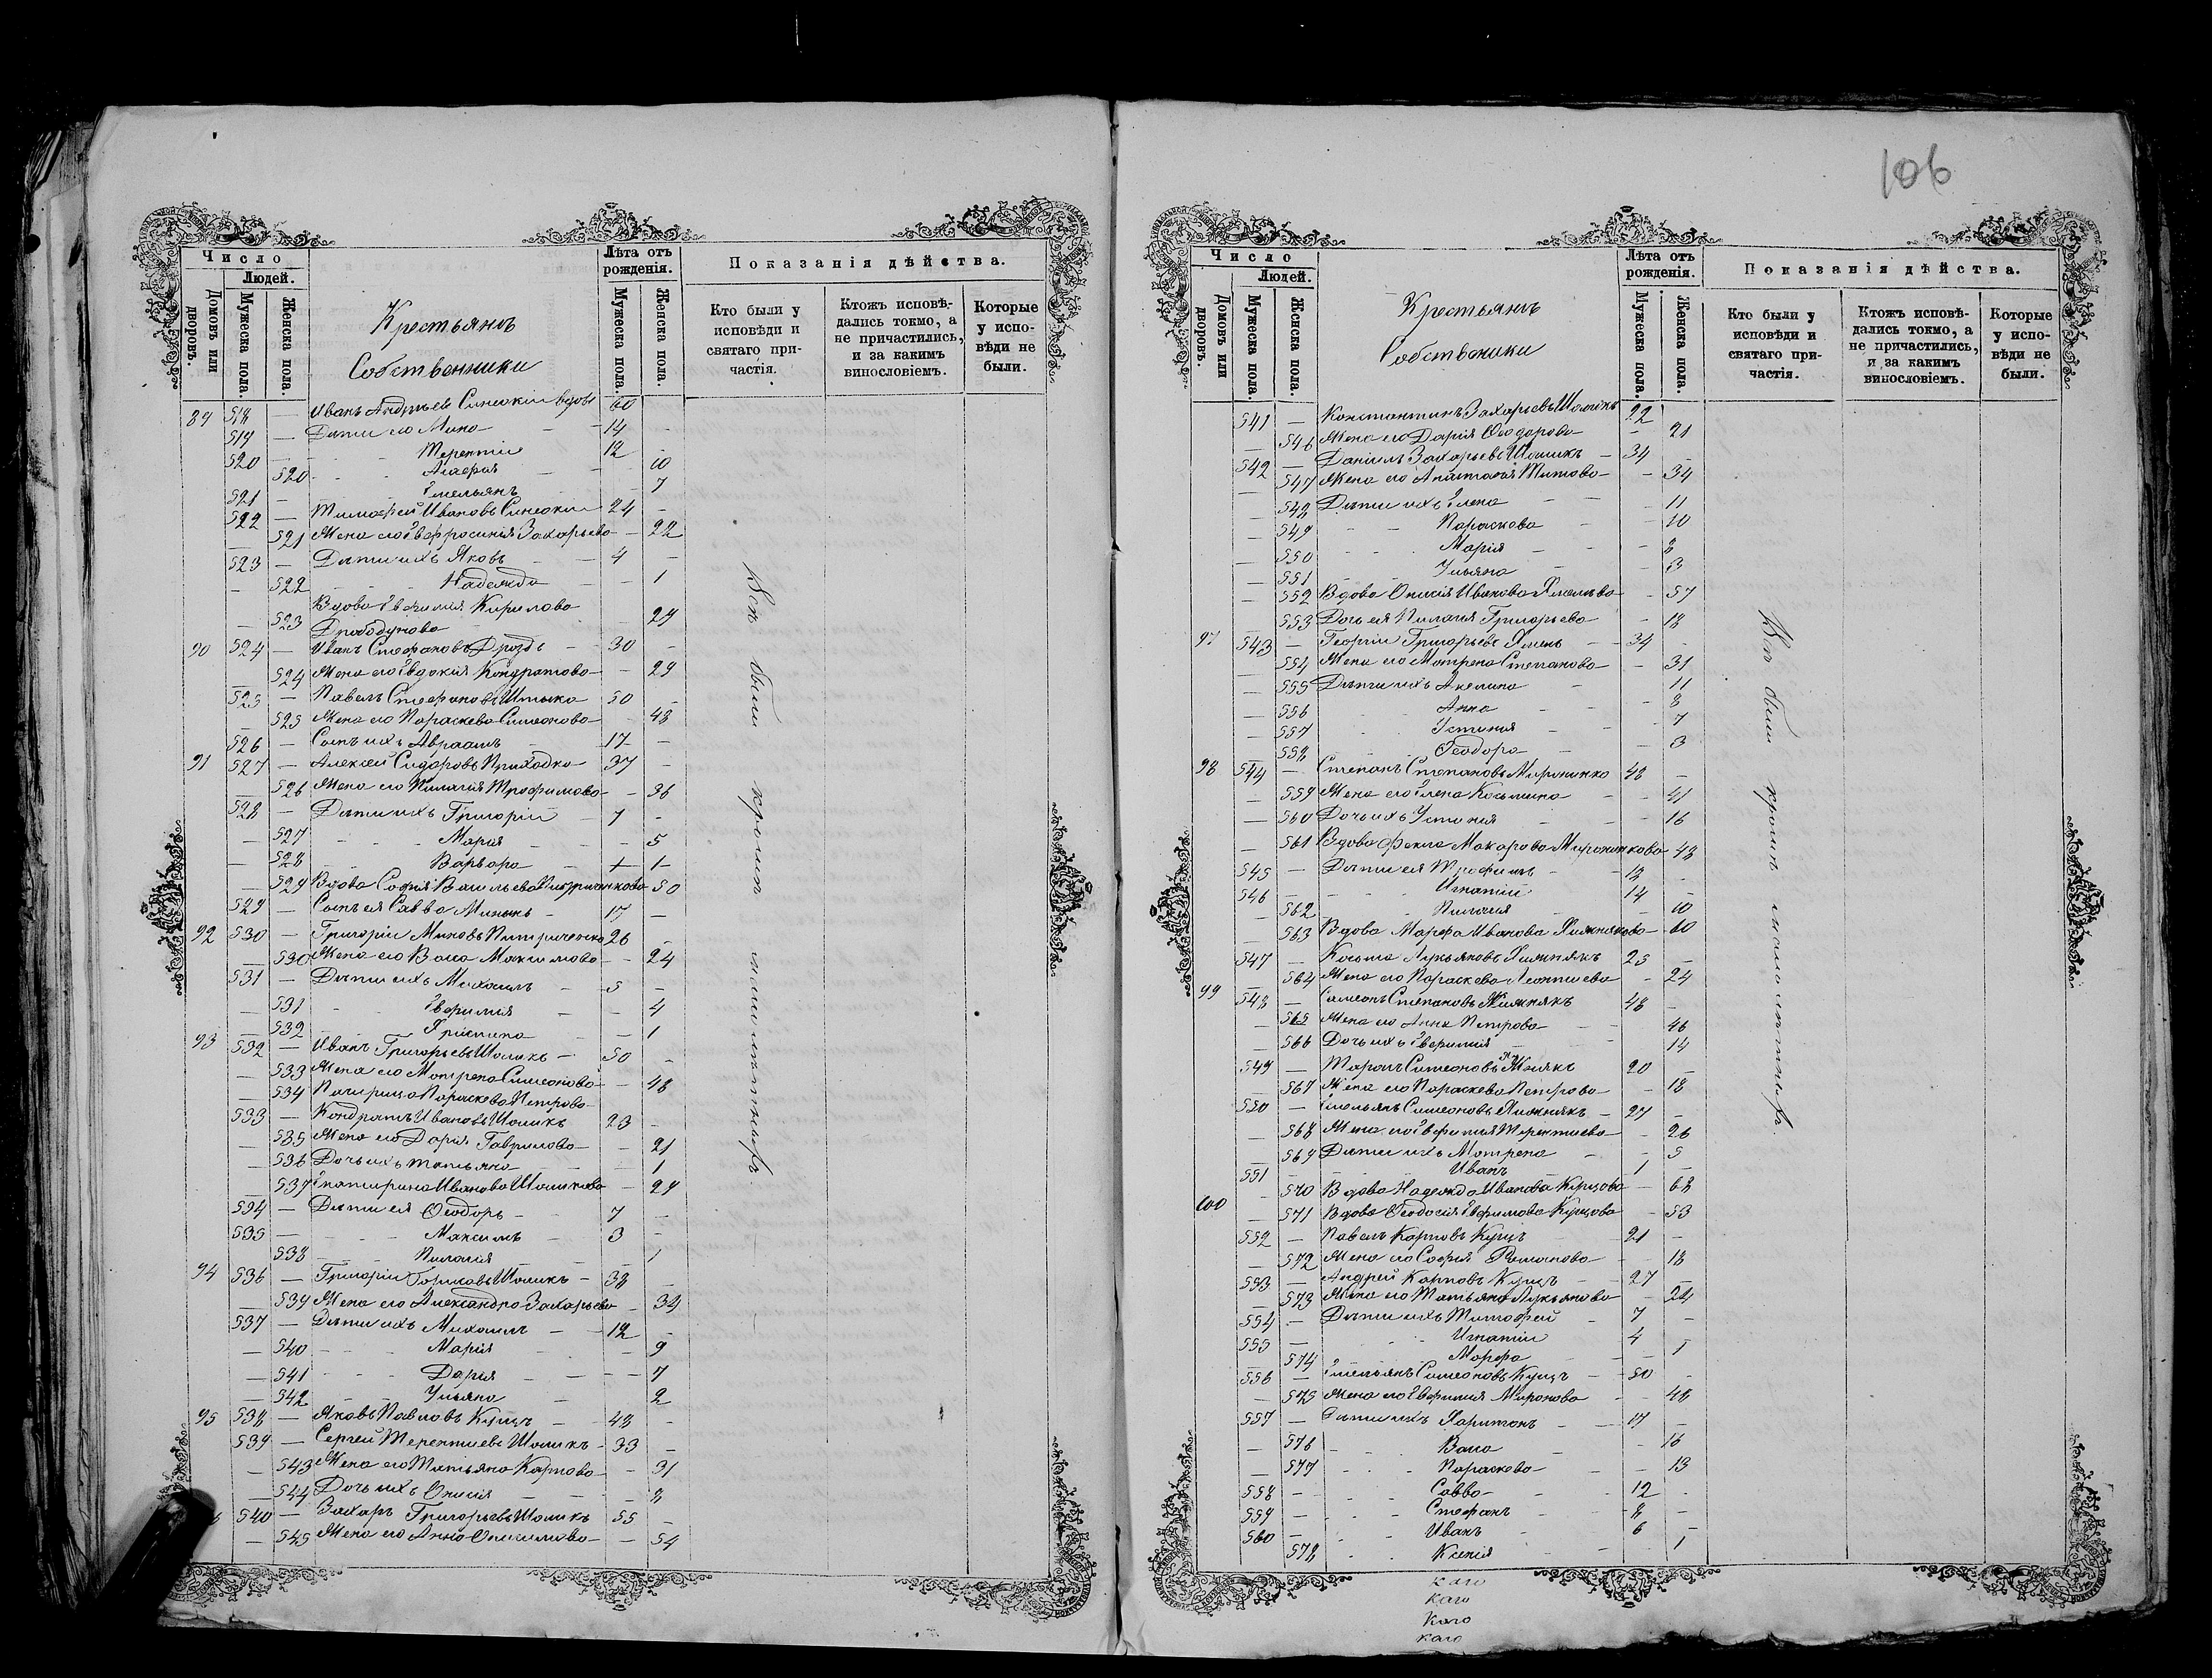 106
Число
Людей.
Домовъ или дворовъ.
Мужеска пола.
Женска пола.
Крестьянъ
Собственники
Лѣта отъ рожденія.
Мужеска пола.
Женска пола.
Показанія дѣйства.
Кто были у исповѣди и святаго причастія.
Ктожъ исповѣдались токмо, а не причастились, и за какимъ винословіемъ.
Которые у исповѣди не были.
89 518 — Иванъ Андреевъ вдовъ 60 -
519 — Дѣти его Мина — 14 -
520 — Терентій 12 -
520 Агафія — 10
521 — Емельянъ — 7
522 — Тимофей Ивановъ 24 -
— 521 Жена его Евфросинія Захарьева — 22
523 — Дѣти ихъ Яковъ — 4 -
— 522 Надежда — 1
Вдова Евфимія Кирилова
— 523 — 29
90 524 — Иванъ Стефановъ Дроздъ — 30 -
524 Жена его Евдокія Кондратова — 29
525 — Павелъ Стефановъ Штыка 50 -
— 525 Жена его Параскева Симеонова — 48
526 — Сынъ ихъ Авраамъ — 17 -
91 527 — Алексей Сидоровъ Приходко 37 -
— 526 Жена его Пилагія Трофимова — 36
528 — Дѣти ихъ Григорій — 7 -
— 527 Марія — 5
— 528 Варвара — + 1
— 529 Вдова Софія Васильева 50
529 — Сынъ ея Савва Мининъ — 17 —
92 530 — Григорій Миновъ 26 -
— 530 Жена его Васа Максимова — 24
531 — Дѣти ихъ Михаилъ — 5 -
— 531 Евфимія — 4
— 532 — 1
93 532 — Иванъ Григорьевъ Шоликъ — 50 -
— 533 Жена его Матрена Симеонова — 48
— 534 Параскева Петрова
533 — Кондратъ Ивановъ Шоликъ 23 -
— 535 Жена его Дарія Гаврилова — 21
— 536 Дочь ихъ Татьяна — 1
— 537 Екатирина Иванова Шоликова — 29
534 — Дѣти ея Ѳеодоръ — 7 —
535 — Максимъ — 3 -
538 Пилагія — 1
94 536 — Григорій Шоликъ — 38 -
— 539 Жена его Александра Захарьева — 34
537 — Дѣти ихъ Михаилъ — 12 -
— 540 Марія — 9
— 541 Дарія — 7
— 542 Ульяна — 2
95 538 — Яковъ Павловъ Куцъ — 48 -
539 — Сергей Терентіевъ Шоликъ — 33 -
— 543 Жена его Татьяна Карпова — 31
— 544 Дочь ихъ Онисія — 8
540 — Захаръ Григорьевъ Шоликъ 55 -
— 545 Жена его Анна — 54
Всѣ были кромѣ малолетныхъ
Число
Людей.
Домовъ или дворовъ.
Мужеска пола.
Женска пола.
Крестьянъ
Собственики
Лѣта отъ рожденія.
Мужеска пола.
Женска пола.
Показанія дѣйства.
Кто были у исповѣди и святаго причастія.
Ктожъ исповѣдались токмо, а не причастились, и за какимъ винословіемъ.
Которые у исповѣди не были.
541 — Константинъ Захарьевъ Шоликъ 22
— 546 Жена его Дарія Ѳеодорова — 21
542 — Даніилъ Захарьевъ Шоликъ — 34 -
— 547 Жена его Анастасія Титова — 34
— 548 Дѣти ихъ Елена — 11
— 549 Параскева — 10
— 550 Марія — 8
— 551 Ульяна — 3
— 552 Вдова Онисія Иванова — 57
— 553 Дочь ея Пилагія Григорьева — 18
97 543 — Георгій Григорьевъ — 34 -
— 554 Жена его Матрена Степанова — 31
— 555 Дѣти ихъ Акелина — 11
— 556 Анна — 8
— 557 Устинія — 7
— 558 Ѳеодора — 3
98 544 — Степанъ Степановъ Миронинко 48 -
— 559 Жена его Елена Косьмина — 41
— 560 Дочь ихъ Устинія — 16
— 561 Вдова Фекла Макарова Миронинкова 48
545 — Дѣти ея Трофимъ — 18 -
546 — Игнатій 14 -
— 562 Пилагія — 10
— 563 Вдова Марфа Иванова — 60
547 — Косьма Лукьяновъ 25 -
— 564 Жена его Параскева Леонтіева — 24
99 548 — Симеонъ Степановъ 48 -
— 565 Жена его Анна Петрова — 46
— 566 Дочь ихъ Евфимія 14
549 — Симеоновъ 20 -
— 567 Жена его Параскева Петрова — 18
550 — Емельянъ Симеоновъ — 27 -
— 568 Жена его Евфимія Терентіева — 26
— 569 Дѣти ихъ Матрена — 5
551 — Иванъ — 1 -
— 570 Вдова Надежда Иванова Куцова — 68
100 — 571 Вдова Ѳеодосія Евфимова Куцова — 53
552 — Павелъ Карповъ Куцъ 21 -
— 572 Жена его Софія Романова — 18
553 — Андрей Карповъ Куцъ — 27 -
— 573 Жена его Татьяна Лукьянова — 24
554 — Дѣти ихъ Тимофей — 7 -
555 — Игнатій 4
— 574 Марфа — 1
556 — Емельянъ Симеоновъ Куцъ — 50 -
— 575 Жена его Евфимія Миронова — 48
557 — Дѣти ихъ Харитонъ — 17 -
— 576 Васа — 16
— 577 Параскева — 13
558 — Савва — 12 -
559 — Стефанъ — 8 -
560 — Иванъ 6 -
578 Ксенія — 1
Всѣ были кромѣ малолетныхъ
каго
каго
каго
каго